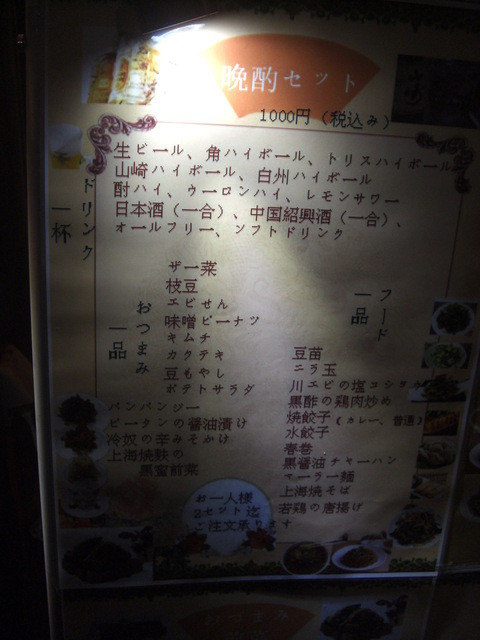 晩酌セット
1000円（税込み）
ドリンク一杯
生ビール、角ハイボール、トリスハイボール
山崎ハイボール、白州ハイボール
酎ハイ、ウーロンハイ、レモンサワー
日本酒（一合）、中国紹興酒（一合）、
オールフリー、ソフトドリンク
おつまみ一品
ザー菜
枝豆
エビせん
味噌ピーナツ
キムチ
カクテキ
豆もやし
ポテトサラダ
バンバンジー
ピータンの醤油漬け
冷奴の辛みそかけ
上海焼麩の
黒蜜前菜
フード一品
豆苗
ニラ玉
川エビの塩コショウ
黒酢の鶏肉炒め
焼餃子（カレー、普通）
水餃子
春巻
黒醤油チャーハン
マーラー麺
上海焼そば
若鶏の唐揚げ
お一人様
2セット迄
ご注文承ります
おつまみ